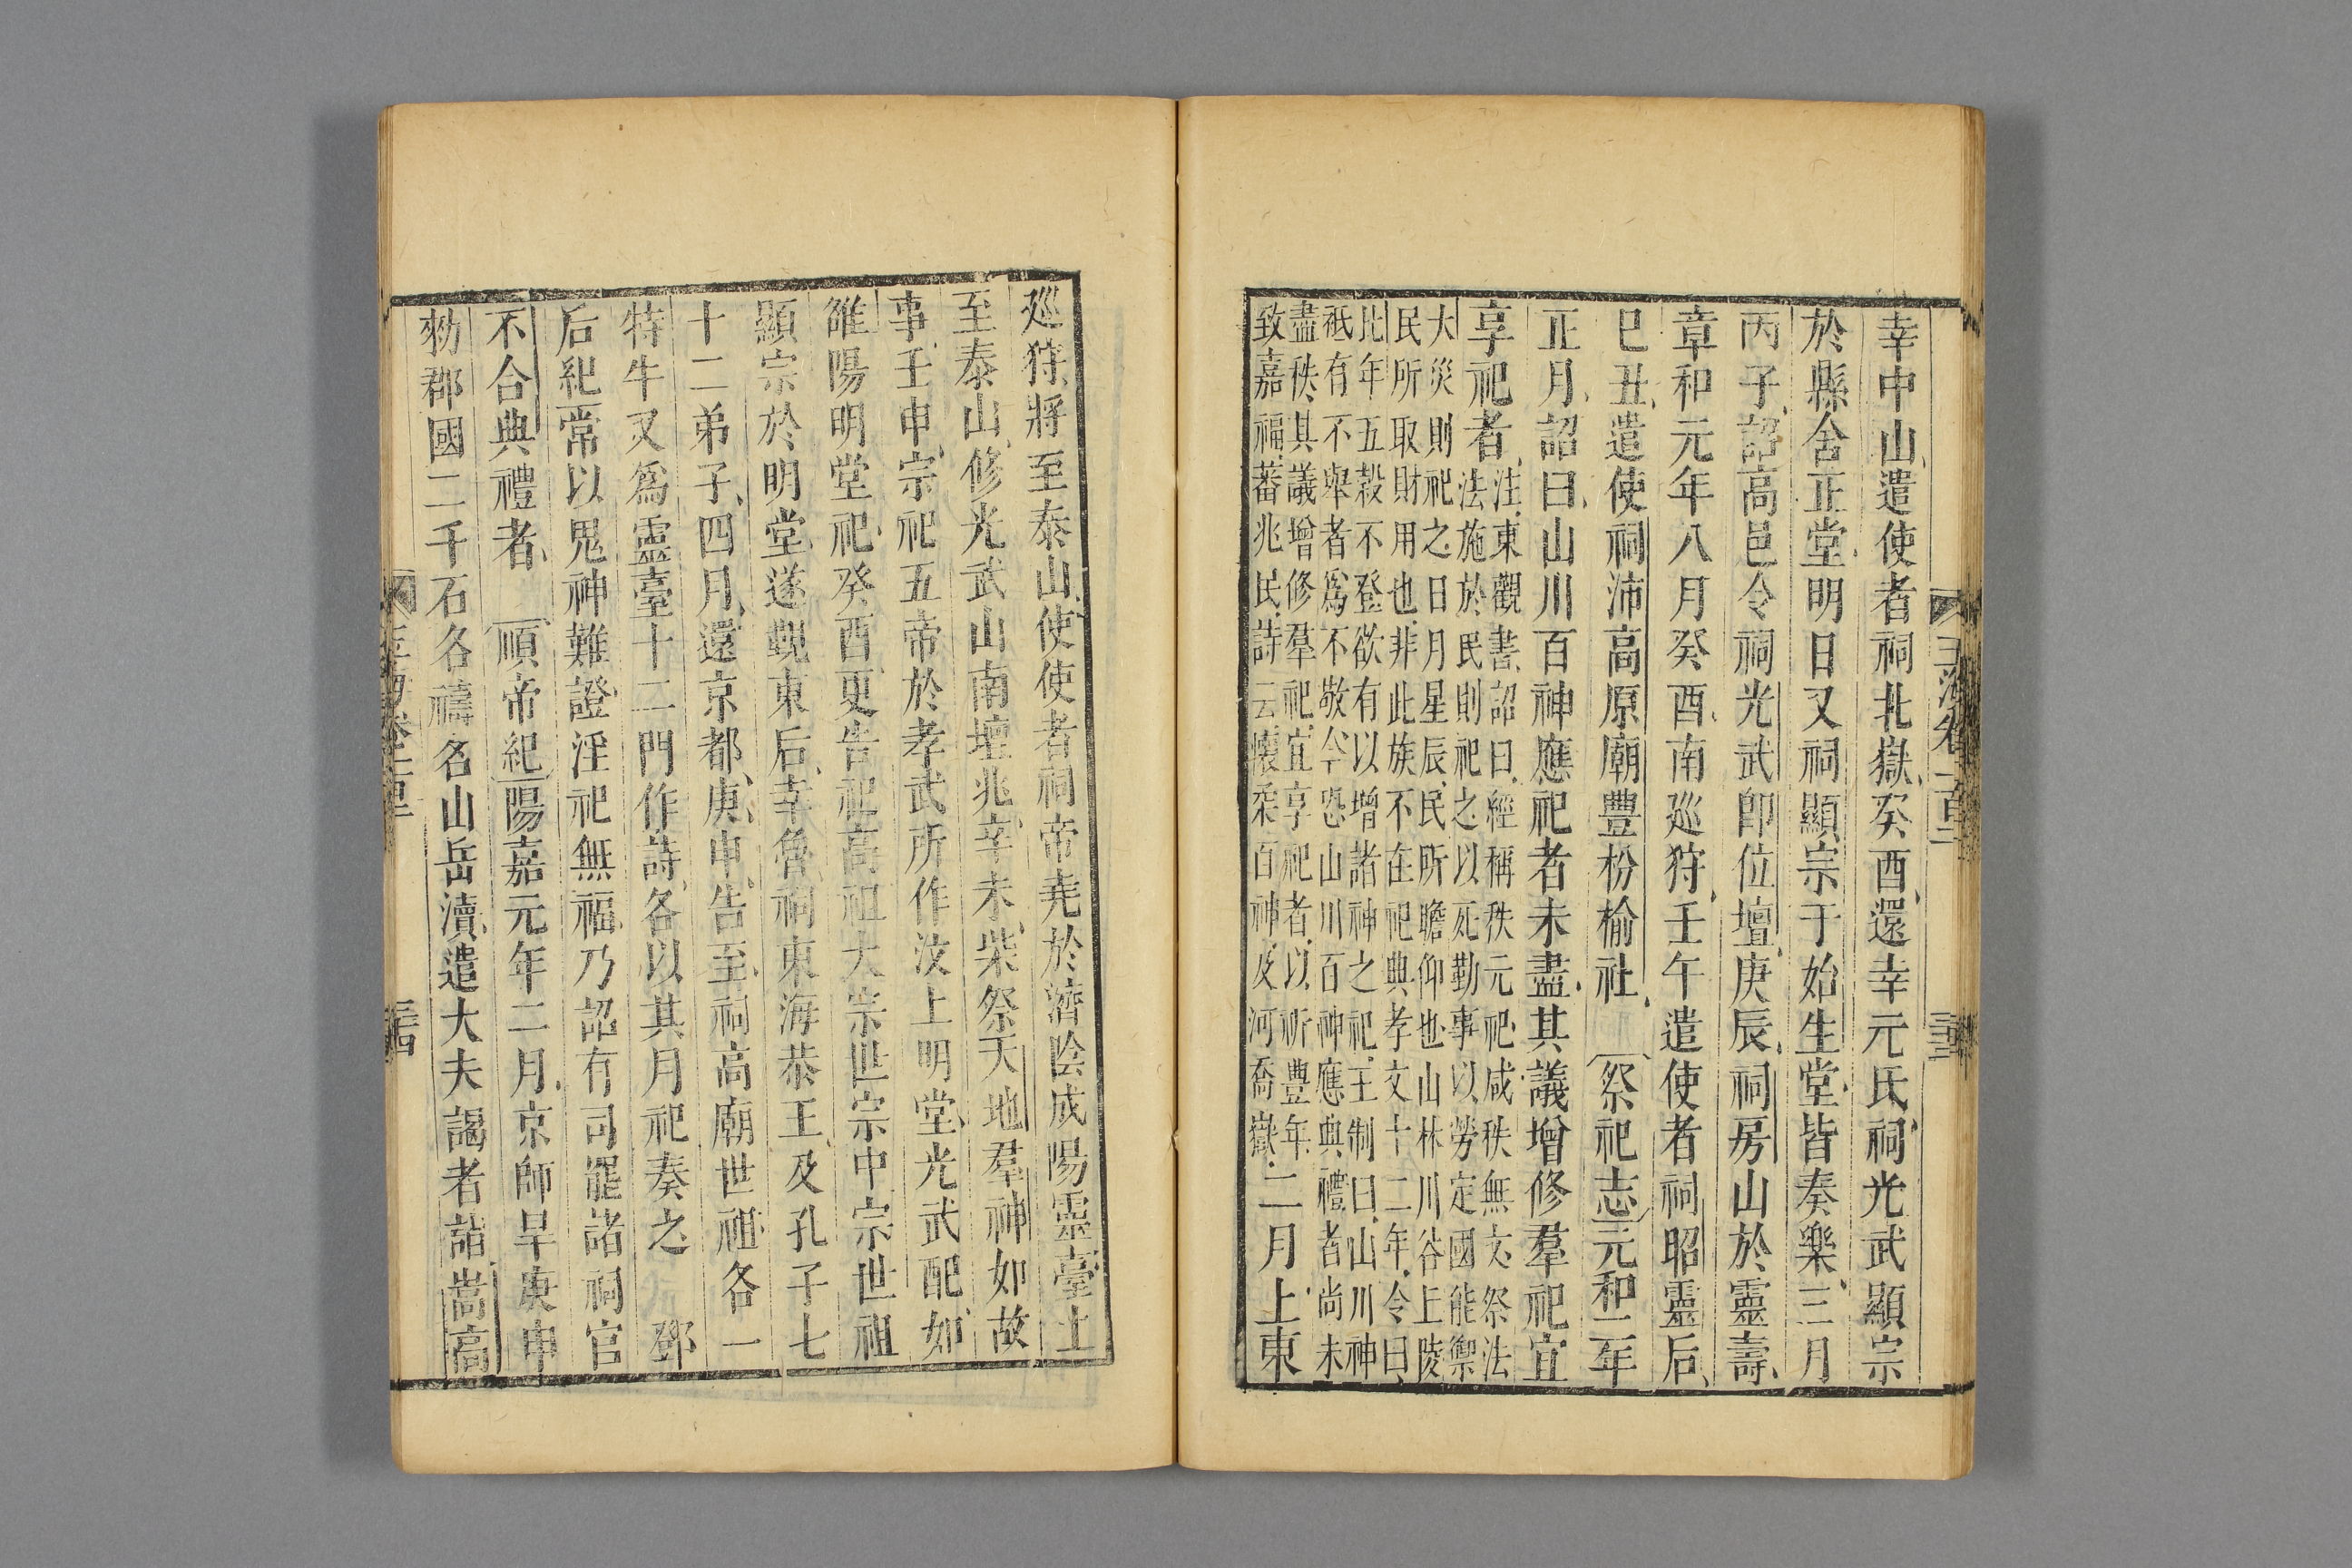 幸中山遣使者祠北嶽癸酉還幸元氏祠光武顯宗
於縣舍正堂明日又祠顯宗于始生堂皆奏樂三月
丙子詔高邑令祠光武卽位壇庚辰祠房山於靈壽
章和元年八月癸酉南巡狩壬午遣使者祠昭靈后
巳丑遣使祠沛高原廟豐枌榆社　祭祀志元和二年
正月詔曰山川百神應祀者未盡其議增修羣祀宜
享祀者
注東觀書詔曰經稱秩元祀咸秩無文祭法
法施於民則祀之以死勤事以勞定國能禦
大災則祀之日月星辰民所瞻仰也山林川谷上陵
民所取財用也非此族不在祀典孝文十二年令曰
比年五穀不登欲有以增諸神之祀王制曰山川神
祇有不舉者爲不敬今恐山川百神應典禮者尚未
盡秩其議增修羣祀宜享祀者以祈豐年
致嘉福蕃兆民詩云懷柔百神及河喬嶽
二月上東
巡狩將至泰山使使者祠帝堯於濟陰成陽靈臺上
至泰山修光武山南壇兆辛未柴祭天地羣神如故
事壬申宗祀五帝於孝武所作汶上明堂光武配如
雒陽明堂祀癸酉更告祀高祖大宗世宗中宗世祖
顯宗於明堂遂覲東后幸魯祠東海恭王及孔子七
十二弟子四月還京都庚申告至祠高廟世祖各一
特牛又爲靈臺十二門作詩各以其月祀奏之　鄧
后紀常以鬼神難證淫祀無福乃詔有司罷諸祠官
不合典禮者　順帝紀陽嘉元年二月京師旱庚申
勑郡國二千石各禱名山岳瀆遣大夫謁者詣嵩高